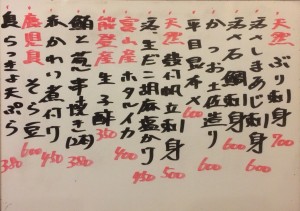 天然 ぶり刺身 700
活〆しまあじ刺身 600
活〆石鯛刺身 600
かつお土佐造り 600
平目昆布〆 600
天然 殻付帆立刺身 500
活〆生だこ胡麻塩かり 450
富山産 ホタルイカ 400
能登産 生子酢 350
鰻と葱 串焼き(2本) 380
赤かれい煮付け 450
鹿児島 そら豆 600
島らっきょ天ぷら 380